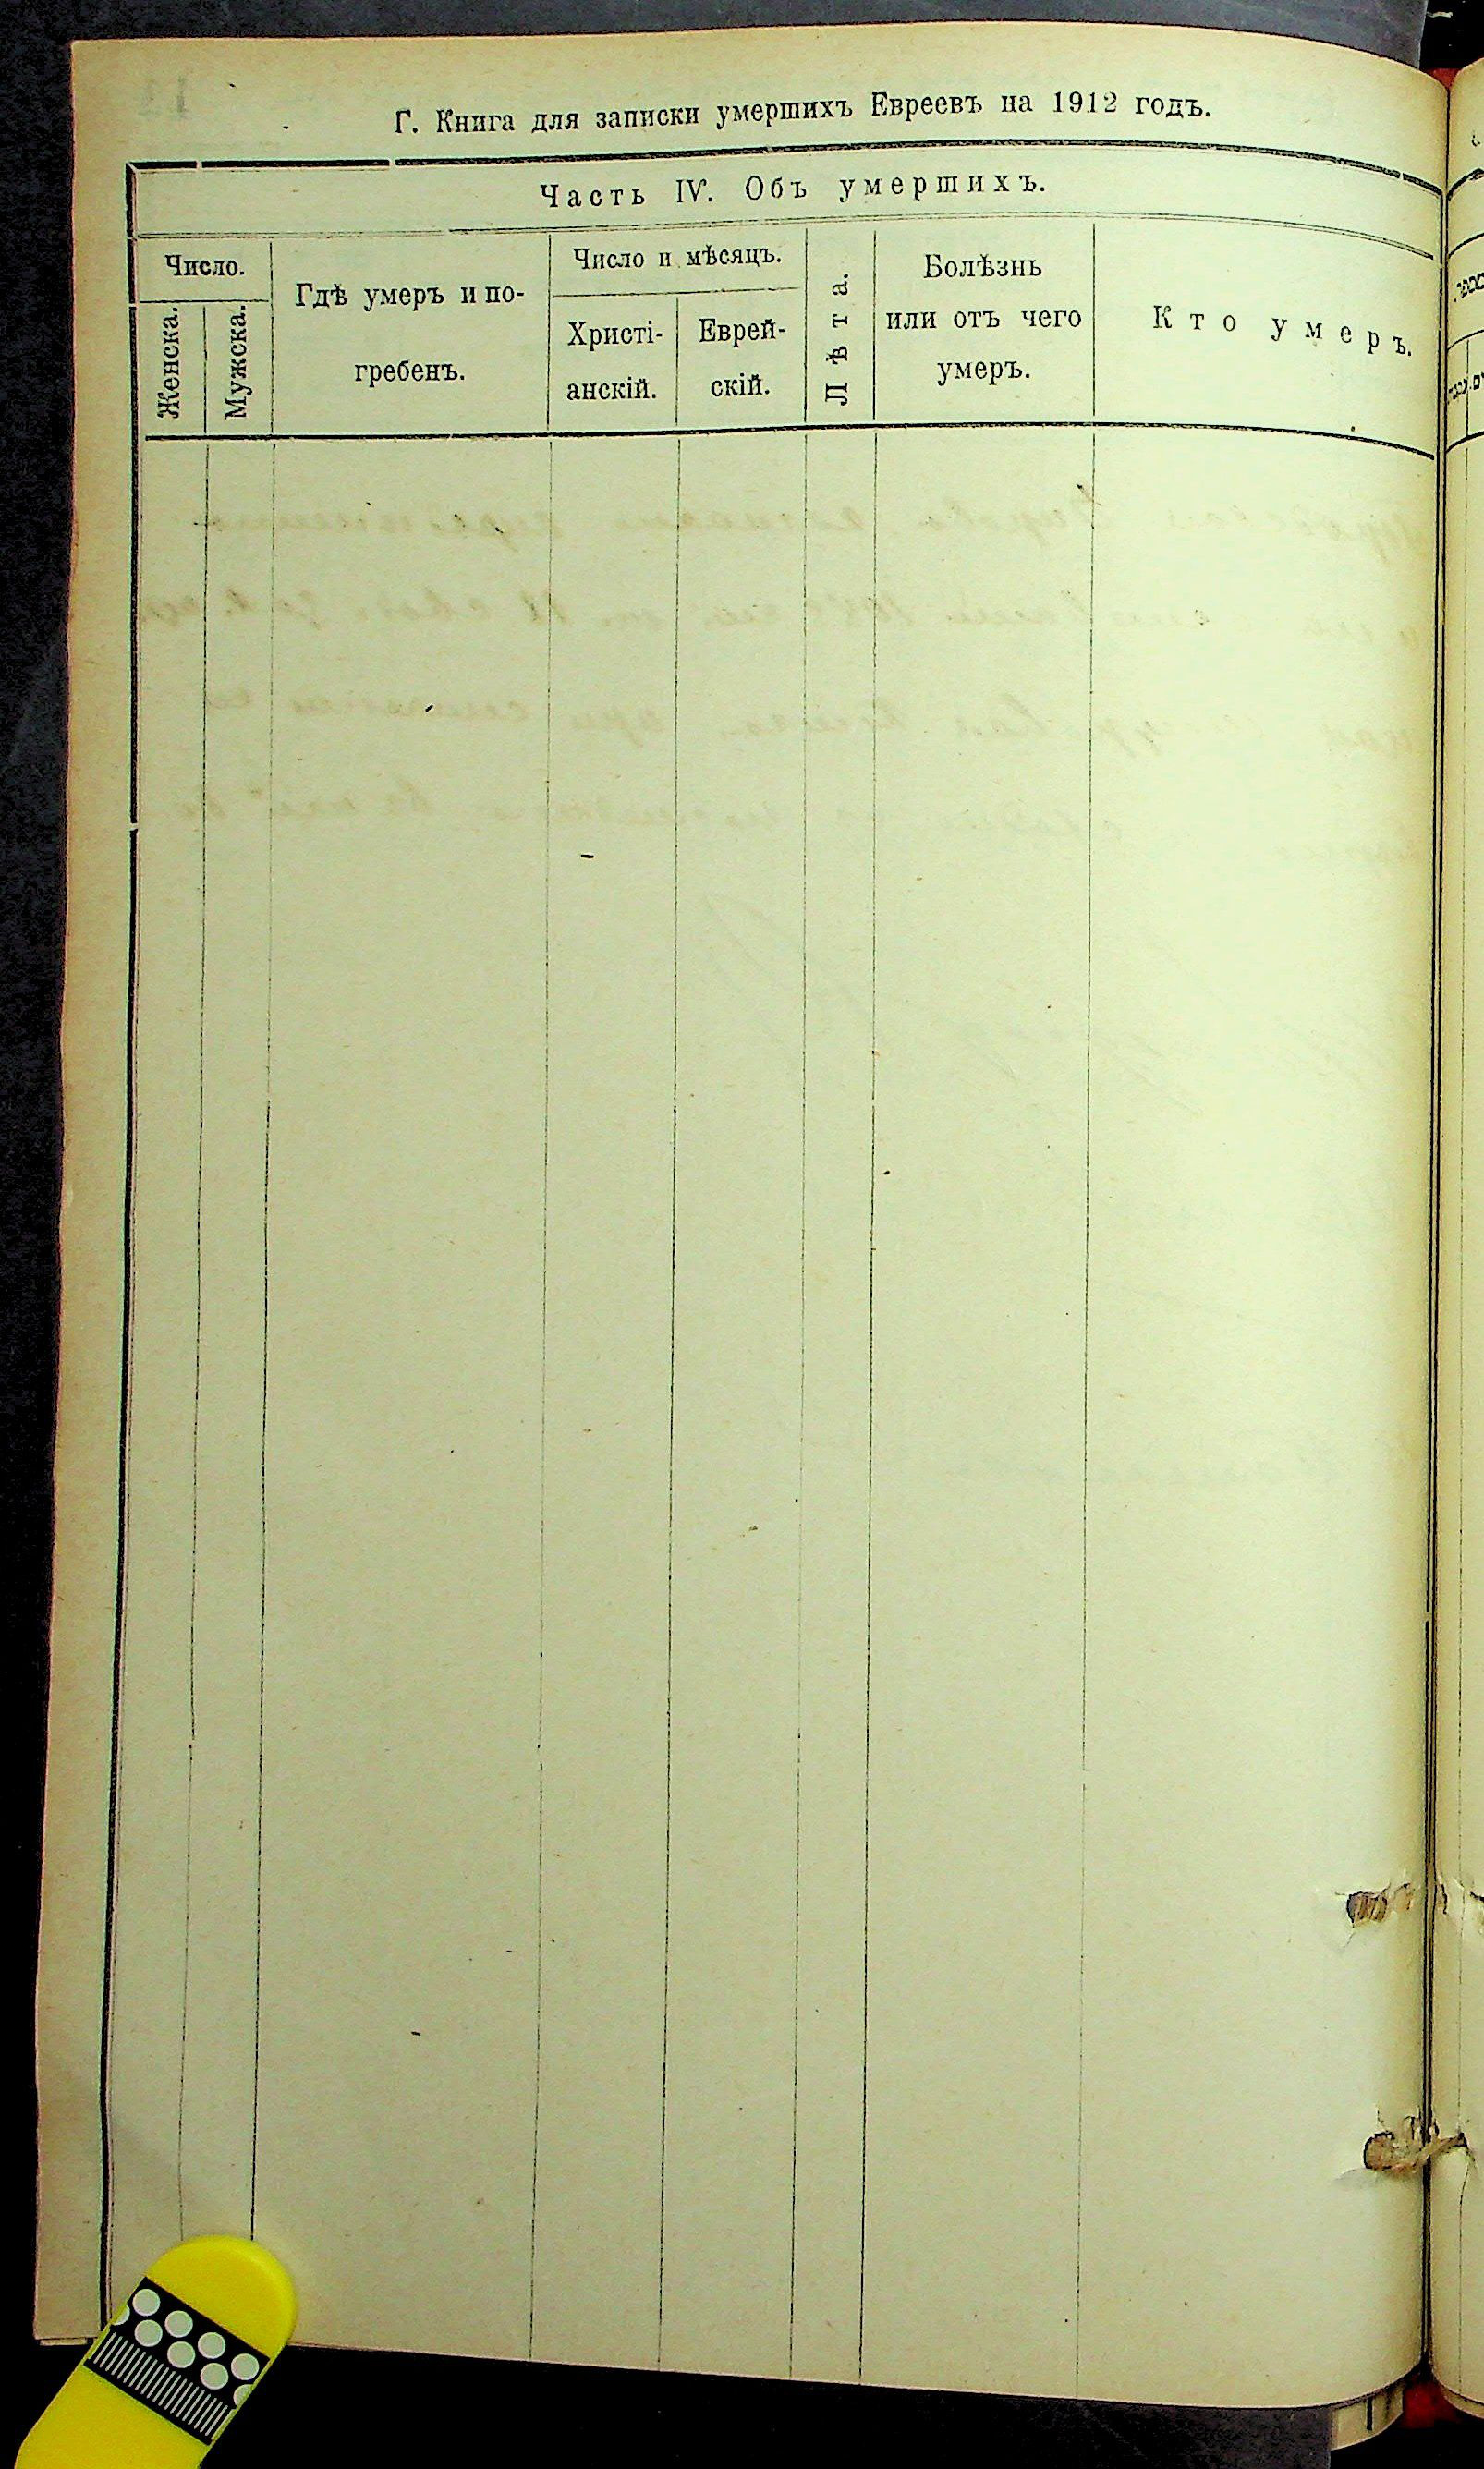 Г. Книга для записки умершихъ Евреевъ на 1912 годъ.
Часть IV. Объ умершихъ.
Число.
Женска.
Мужска.
Гдѣ умеръ и по-
гребенъ.
Число и мѣсяцъ.
Христі-
анскій.
Еврей-
скій.
Лѣта.
Болѣзнь
или отъ чего
умеръ.
Кто умеръ.